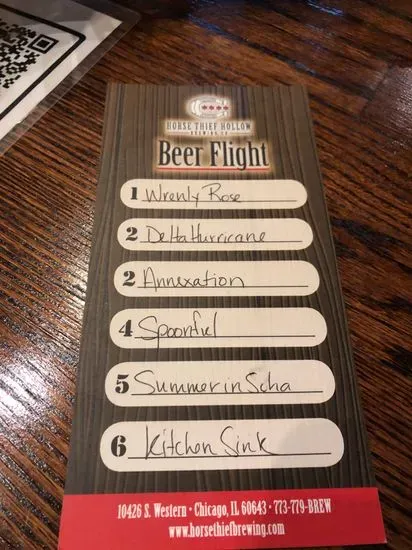 HORSE THIEF HOLLOW
BREWING CO.
Beer Flight
1 Wrenly Rose
2 Delta Hurricane
2 Annexation
4 Spoonful
5 Summer in Soha
6 Kitchen Sink
10426 S. Western • Chicago, IL 60643 • 773-779-BREW
www.horsethiefbrewing.com